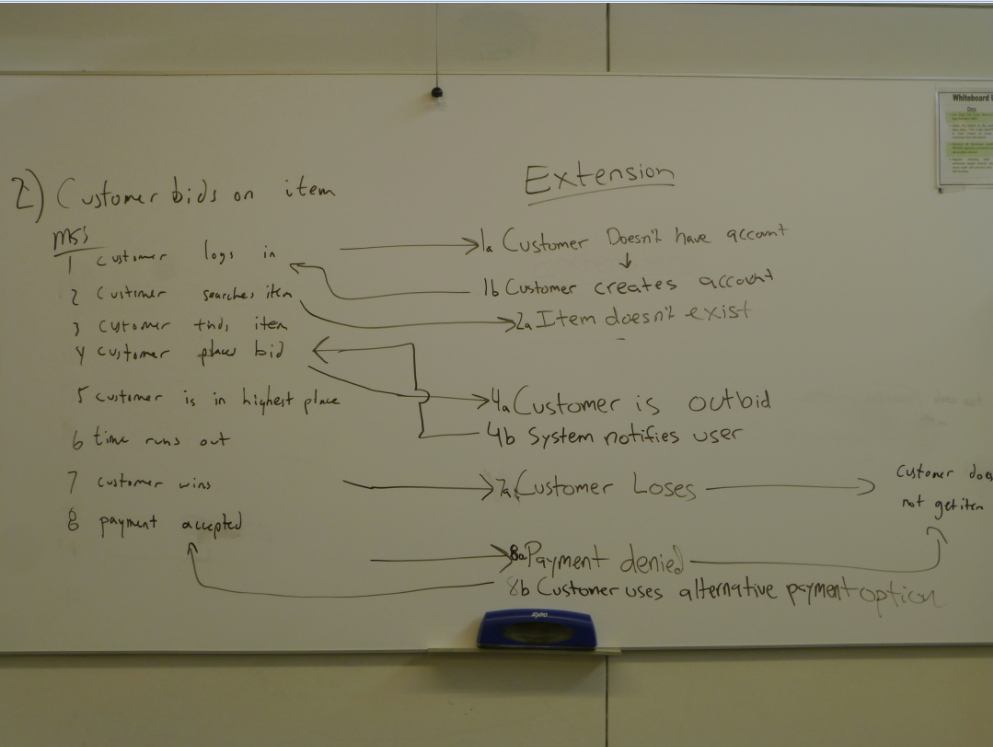 2) Customer bids on item
MSS
1 customer logs in
2 Customer searches item
3 customer finds item
4 customer places bid
5 customer is in highest place
6 time runs out
7 customer wins
8 payment accepted
Extension
1a Customer Doesn't have account
1b Customer creates account
2a Item doesn't exist
4a Customer is outbid
4b System notifies user
7a Customer Loses
Customer does
not get item
8a Payment denied
8b Customer uses alternative payment option
Whiteboard
expo